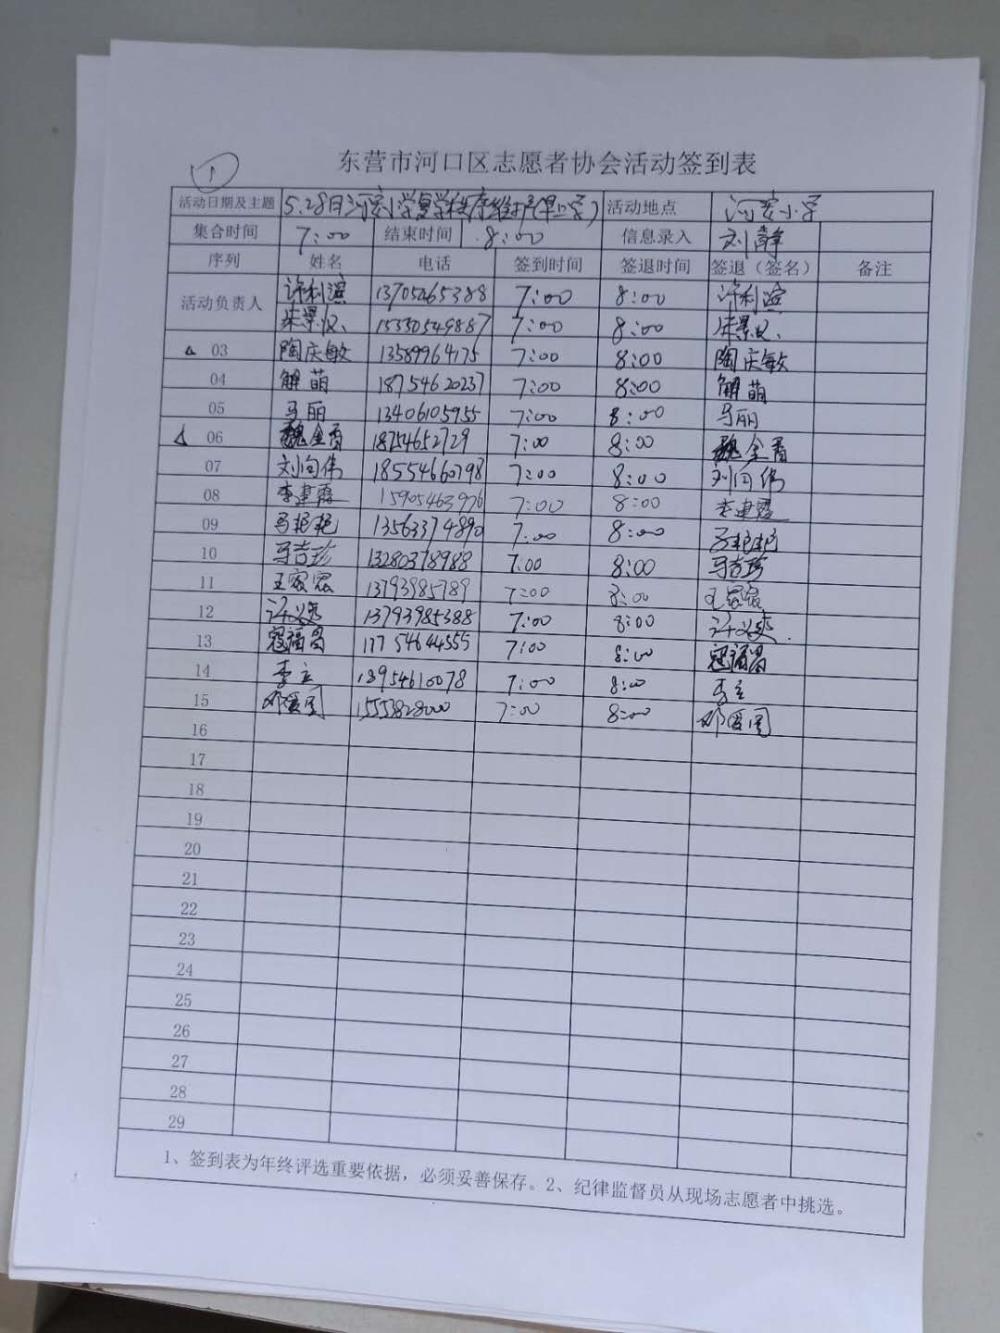 ①
东营市河口区志愿者协会活动签到表
活动日期及主题 5.28日河安小学复学秩序维护(早上学) 活动地点 河安小学
集合时间 7:00 结束时间 8:00 信息录入 刘静
序列 姓名 电话 签到时间 签退时间 签退（签名） 备注
活动负责人 许利滨 13705465388 7:00 8:00 许利滨
15330549887 7:00 8:00
03 陶庆敏 13589964175 7:00 8:00 陶庆敏
04 解萌 18754620237 7:00 8:00 解萌
05 马丽 13406105955 7:00 8:00 马丽
06 魏金香 18754652729 7:00 8:00 魏金香
07 刘向伟 18554660798 7:00 8:00 刘向伟
08 李建霞 15905463976 7:00 8:00 李建霞
09 马艳艳 13563374890 7:00 8:00 马艳艳
10 马吉珍 13280378988 7:00 8:00 马吉珍
11 13793985789 7:00 8:00
12 13793985388 7:00 8:00
13 寇福昌 17754644555 7:00 8:00 寇福昌
14 李立 13954610078 7:00 8:00 李立
15 邓爱国 15553828000 7:00 8:00 邓爱国
16
17
18
19
20
21
22
23
24
25
26
27
28
29
1、签到表为年终评选重要依据，必须妥善保存。2、纪律监督员从现场志愿者中挑选。